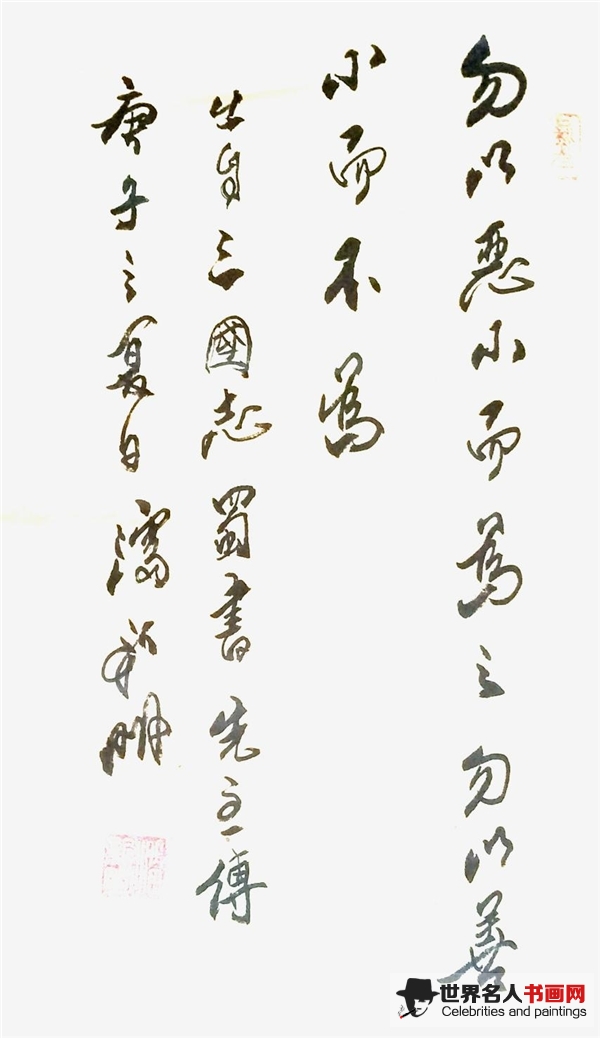 勿以惡小而爲之勿以善
小而不爲
出自三國志蜀書先主傳
庚子之夏日 明
世界名人书画网
Celebrities and paintings